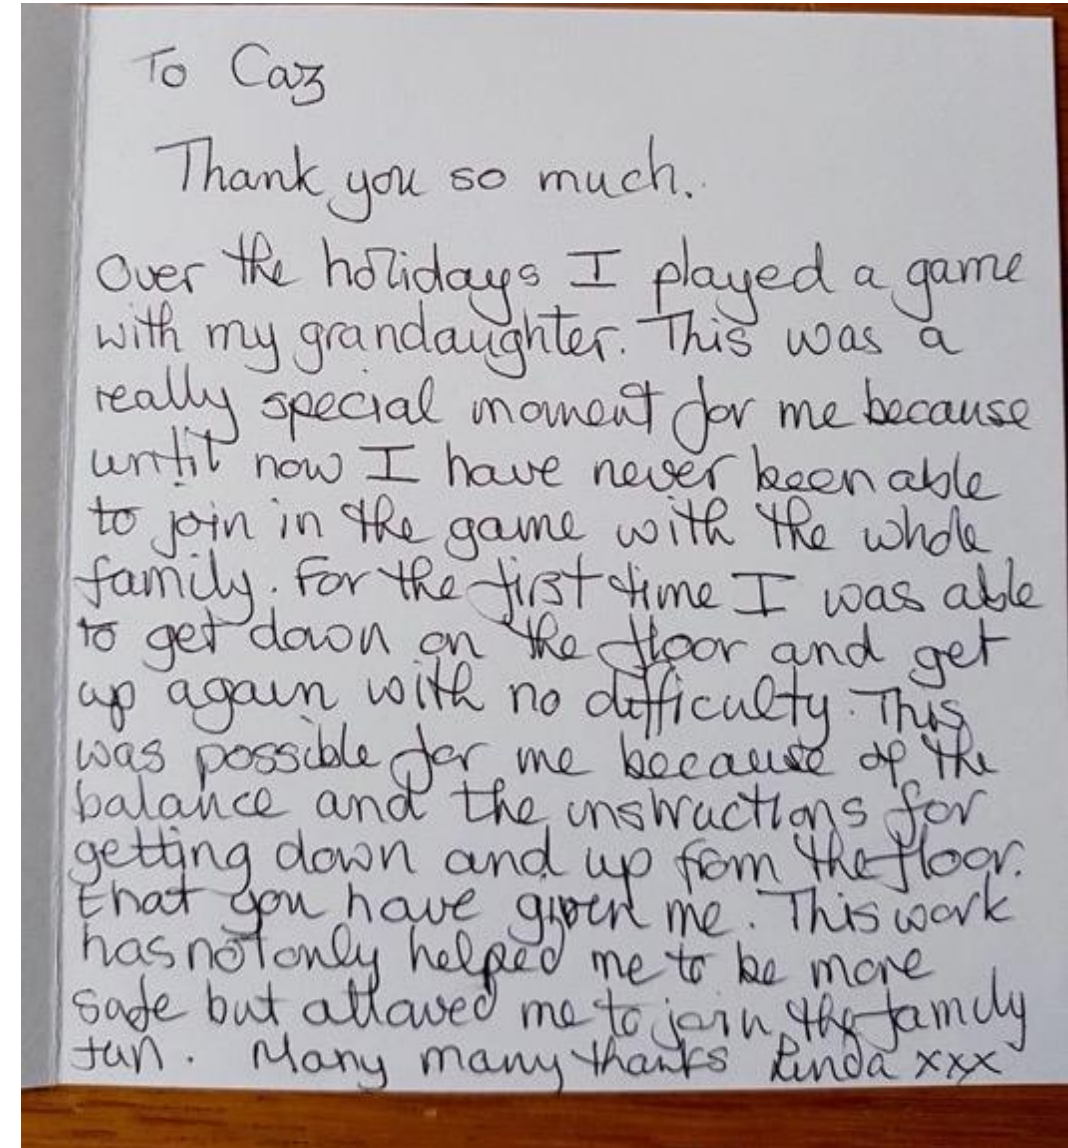 To Caz
Thank you so much.
Over the holidays I played a game
with my grandaughter. This was a
really special moment for me because
until now I have never been able
to join in the game with the whole
family. For the first time I was able
to get down on the floor and get
up again with no difficulty. This
was possible for me because of the
balance and the instructions for
getting down and up from the floor.
that you have given me. This work
has not only helped me to be more
safe but allowed me to join the family
fun. Many many thanks Linda xxx